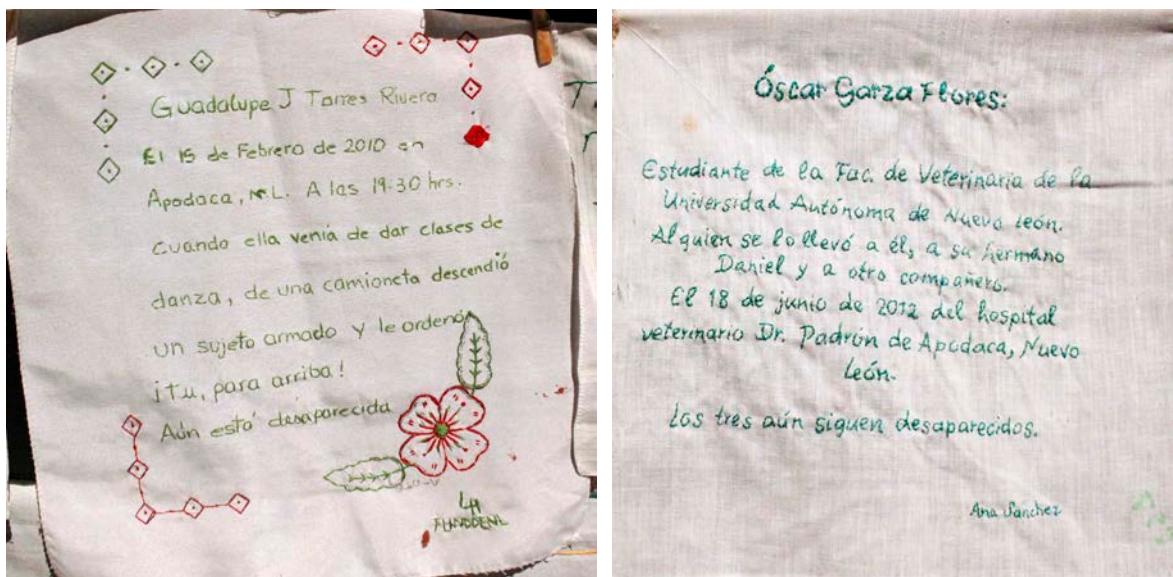 Guadalupe J Torres Rivera
El 15 de Febrero de 2010 en
Apodaca, N.L. A las 19:30 hrs.
Cuando ella venía de dar clases de
danza, de una camioneta descendió
un sujeto armado y le ordenó
¡Tu, para arriba!
Aún está desaparecida
LH
FUNDDENL
Óscar Garza Flores:
Estudiante de la Fac. de Veterinaria de la
Universidad Autónoma de Nuevo León.
Alguien se lo llevó a él, a su hermano
Daniel y a otro compañero.
El 18 de junio de 2012 del hospital
veterinario Dr. Padrón de Apodaca, Nuevo
León.
Los tres aún siguen desaparecidos.
Ana Sánchez